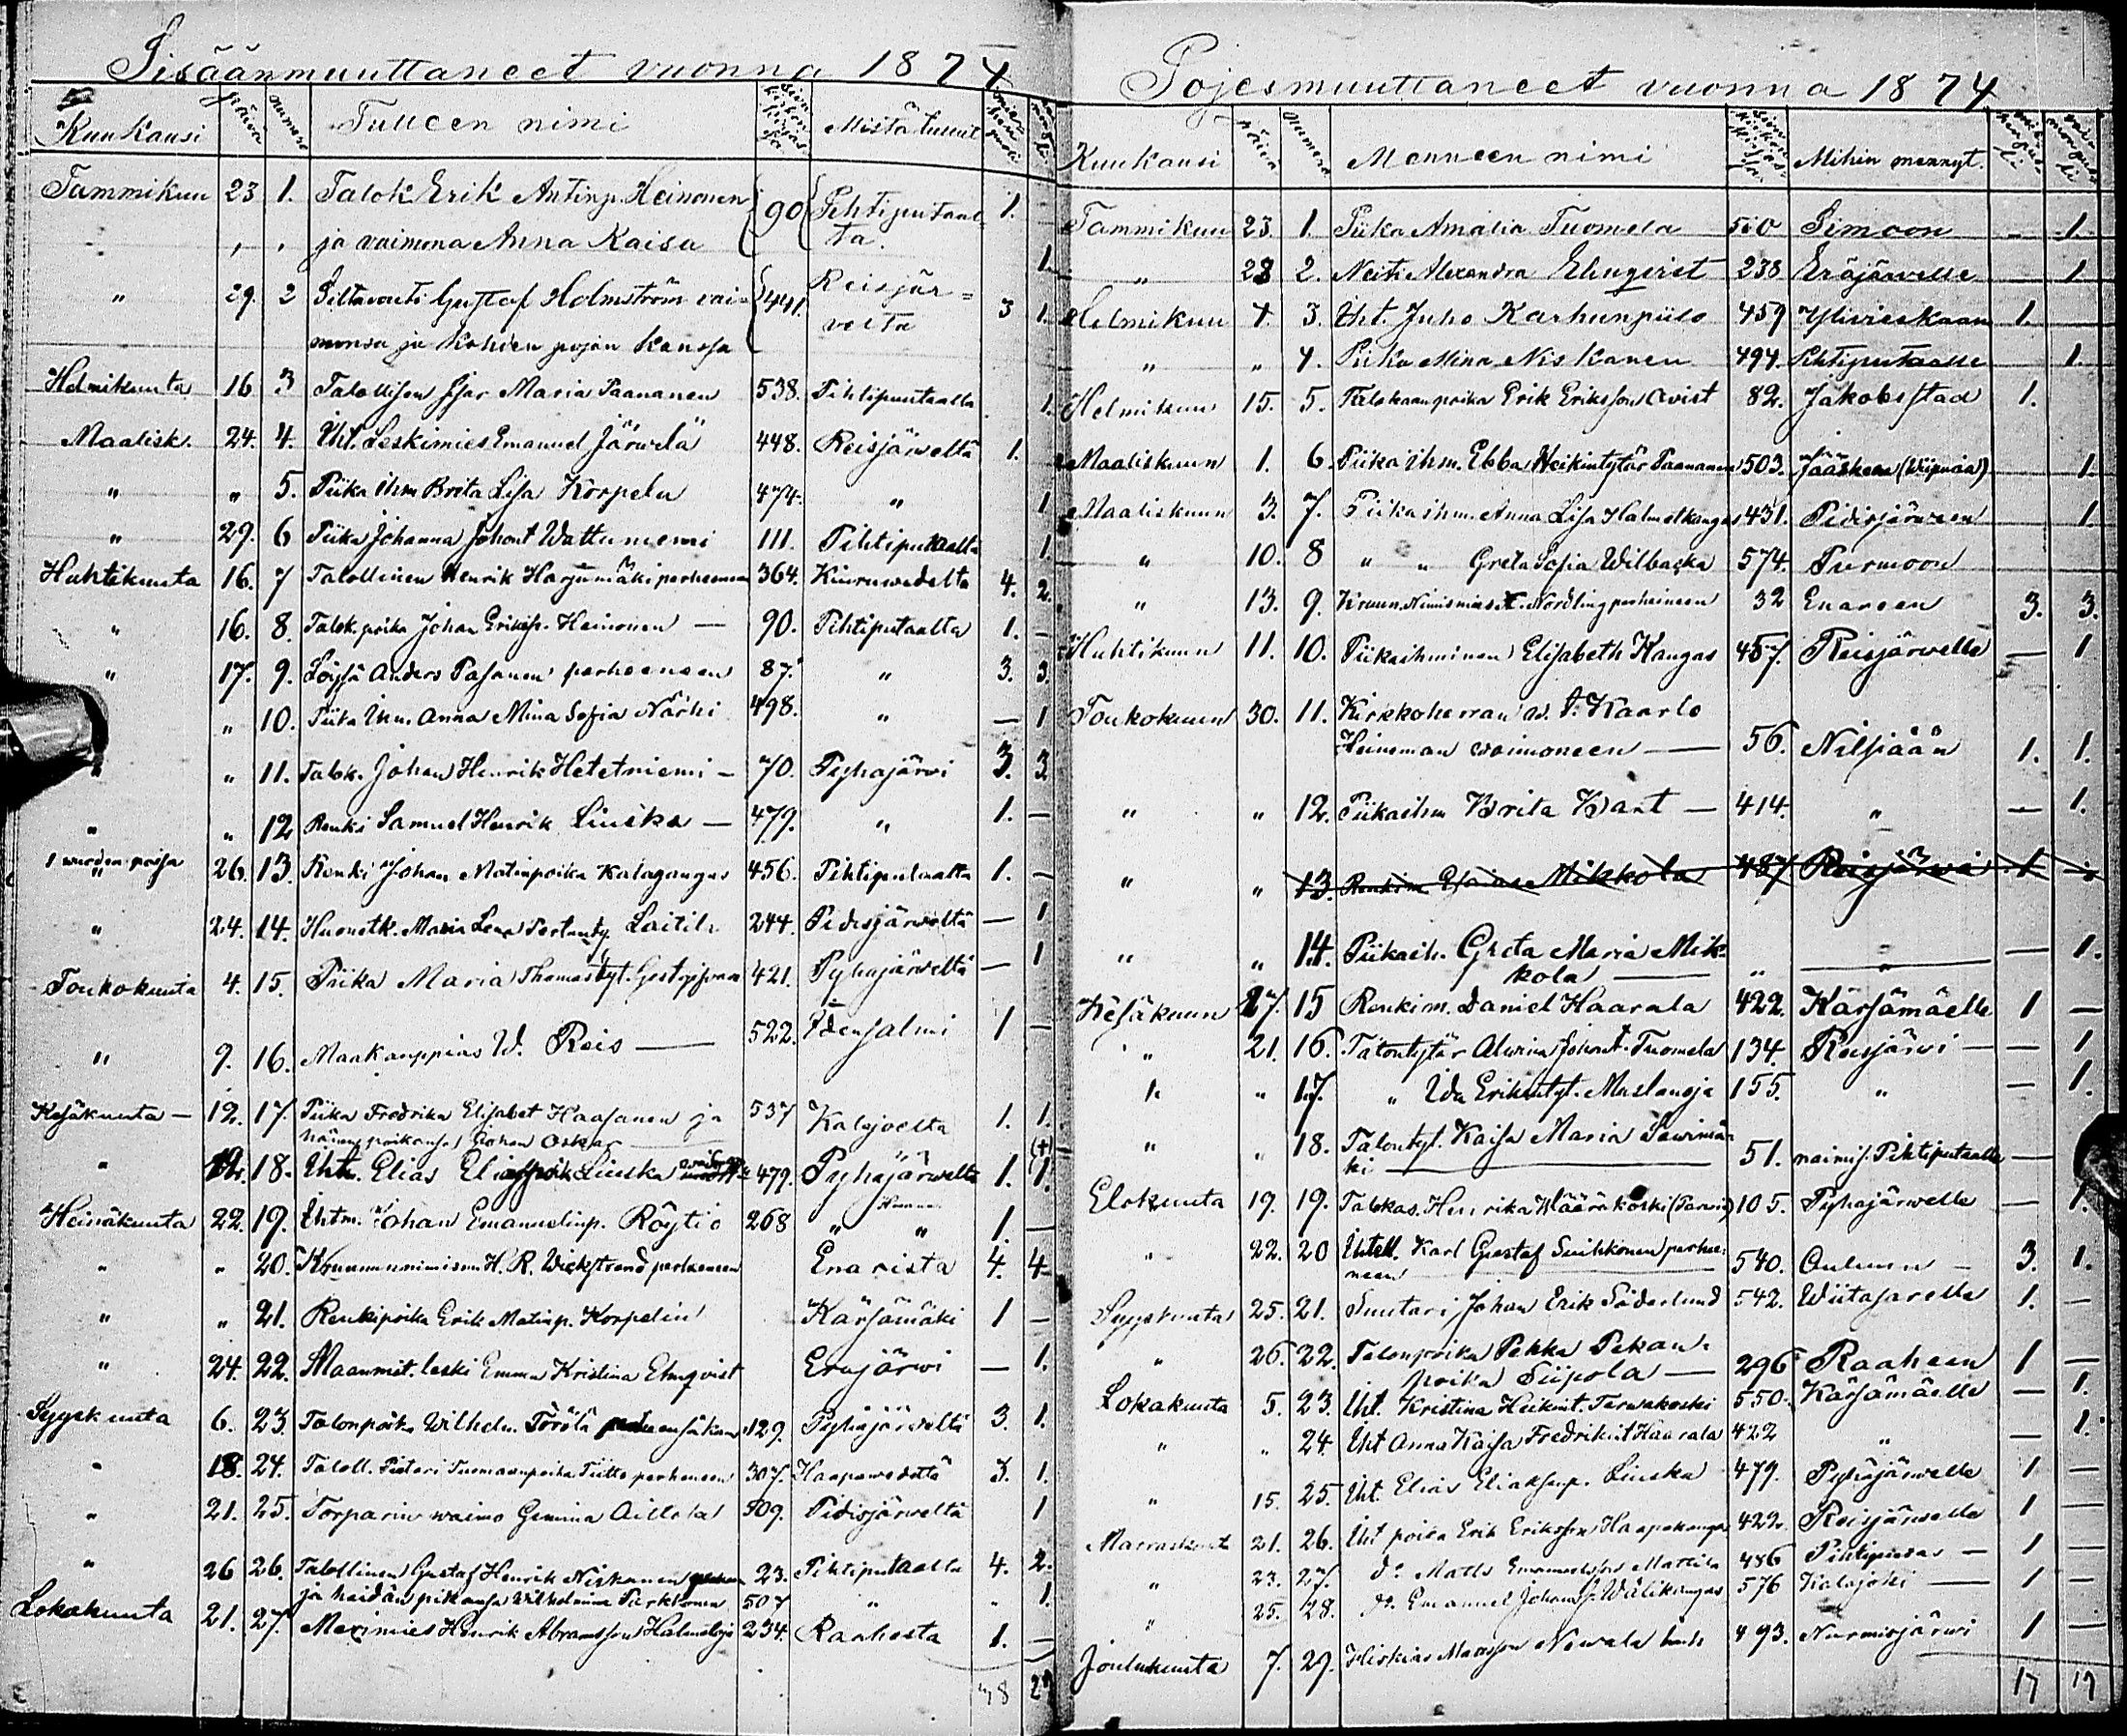 Sisäänmuuttaneet vuonna 1874
Kuukausi päivä numero Tulleen nimi Mistä tullut
Tammikuu 23 1. Talok Erik Antinp. Heinonen 90 Pihtiputaal 1.
" , , ja vaimona Anna Kaisa ta. 1.
" 29. 2 Siltavouti Gustaf Holmström vai= 441. Reisjär= 3 1.
monsa ja kahden pojan kanssa veltä
Helmikuuta 16 3 Talollisen Maria Paananen 538. Pihtiputaalta 1.
Maalisk. 24. 4. Iht. Leskimies Emanuel Järwelä 448. Reisjärweltä 1.
" " 5. Piika ihm Brita Lisa Korpela 474. " 1
" 29. 6 Piika Johanna Johont Wattuniemi 111. Pihtiputaalta 1.
Huhtikuuta 16. 7 Talollinen Henrik Harjumäki perheineen 364. Kiuruwedeltä 4. 2.
" 16. 8. Talok poika Johan Eriksp. Heinonen — 90. Pihtiputaalta 1. —
" 17. 9. Anders Pasanen perheeneen 87. " 3. 3.
" 10. Piika Ihm. Anna Mina Sofia Närhi 498. " — 1
" " 11. Talok. Johan Henrik Hetetniemi — 70. Pyhajärwi 3. 3
" " 12 Renki Samuel Henrik Liuska — 479. " 1. —
1 wuoden paissa
" 26. 13. Renki Johan Matinpoika Kalagangas 456. Pihtiputaalta 1. —
" 24. 14. Maria Lena Laitila 244. Pidisjärweltä — 1
Toukokuuta 4. 15. Piika Maria Thomastyt. 421. Pyhajärweltä — 1
" 9. 16. Maakauppias W. Reis — 522. Idensalmi 1 —
Kesäkuuta — 12. 17. Piika Fredrika Elisabet Haasanen ja 537 Kalajoelta 1. 1.
hänen poikansa Johan Oskar
" 12. 18. Iht. Elias Liuska 479. Pyhäjärweltä 1. 1.
Heinäkuuta 22. 19. Ihtm. Johan Emanuelinp. Röytiö 268 " " 1. —
" " 20. Kruununnimism H. R. Wickstrand perheneen Enarista 4. 4
" " 21. Renkipoika Erik Matinp. Korpelin Kärsämäki 1 —
" 24. 22. Maanmit. leski Emma Kristina Elmqvist Eräjärwi — 1.
Syyskuuta 6. 23. Talonpoika Wilhelm Törölä 129. Pyhäjärweltä 3. 1.
" 18. 24. Taloll. Pietari Tuomaanpoika Tiitto perheneen 307. Haapawedeltä 3. 1.
" 21. 25. Torparin waimo Gemina Aillola 509. Pidisjärweltä 1
" 26 26. Talollinen Gustaf Henrik Niskanen 23. Pihtiputaalta 4. 2.
ja heidän piikansa Wilhelmina Turkkonen 507 " " 1.
Lokakuuta 21. 27. Merimies Henrik Abramsson Halmeloja 234. Raahesta 1. —
48 29
Pojesmuuttaneet vuonna 1874
Kuukausi päivä numero Menneen nimi Mihin mennyt.
Tammikuu 23. 1. Piika Amalia Tuomela 510 Simoon — 1.
" 28 2. Neiti Alexandra Elmqvist 238 Eräjärwelle 1.
Helmikuu 4. 3. Iht. Juho Karhunpiilo 459 Ylivieskaan 1.
" " 4. Piika Mina Niskanen 494. Pihtiputaalle 1.
Helmikuu 15. 5. Talokaanpoika Erik Eriksson Qvist 82. Jakobsstad 1.
Maaliskuun 1. 6. Piika ihm. Ebba Heikintytär Paananen 503. Jääskeen (Wiipuria) 1.
Maaliskuun 3. 7. Piika ihm. Anna Lisa Halmetkangas 431. Pidisjärween 1.
" 10. 8 " " Greta Sofia Wilbacka 574. Purmoon
" 13. 9. Kruun. Nimismies C. Nordling perheineen 32 Enareen 3. 3.
Huhtikuun 11. 10. Piikaihminen Elisabeth Kangas 457. Reisjärwelle — 1
Toukokuun 30. 11. Kirkkoherran w. t. Kaarlo
Heineman waimoneen — 56. Nilsiään 1. 1.
" " 12. Piikaihm Brita Kant — 414. " — 1.
" " 13. Renkim Mikkola 487 Reisjärwi 1 —
" " 14. Piikaih. Greta Maria Mik=
kola — " " — 1.
Kesäkuun 17. 15 Renkim. Daniel Haarala 422. Kärsämäelle 1 —
" 21. 16. Talontytär Alwina Johont. Tuomela 134. Reisjärwi — — 1
" " 17. " Ida Erikintyt. Maslanoja 155. " — 1.
" " 18. Talontyt. Kaisa Maria Sawimä=
ki — 51. naimis. Pihtiputaalle —
Elokuuta 19. 19. Talokas. Henrika Määräkoski 105. Pyhajärwelle — 1.
" 22. 20 Karl Gustaf Suihkonen perhee=
neen 540. Ouluun — 3. 1.
Syyskuuta 25. 21. Suutari Johan Erik Söderlund 542. Wiitasarelle 1. —
" 26. 22. Talonpoika Pekka Pekan=
poika Siipola — 296 Raaheen 1 —
Lokakuuta 5. 23. Iht. Kristina Heikint. Terwakoski 550. Kärsämäelle — 1.
" " 24. Iht Anna Kaisa Fredrikint Haarala 422 " — 1.
" 15. 25. Iht. Elias Eliaksenp. Liuska 479. Pyhäjärwelle 1 —
Marraskuut 21. 26. Iht poika Erik Eriksson Haapakangas 422. Reisjärwelle 1 —
" 23. 27. do Matts Emanuelsson Mattila 486 Pihtipudas — 1 —
" 25. 28. do. Emanuel Johans. Wälikangas 576 Kalajoki — 1 —
Joulukuuta 7. 29. Hiskias Newala 493. Nurmisjärwi 1 —
17 17